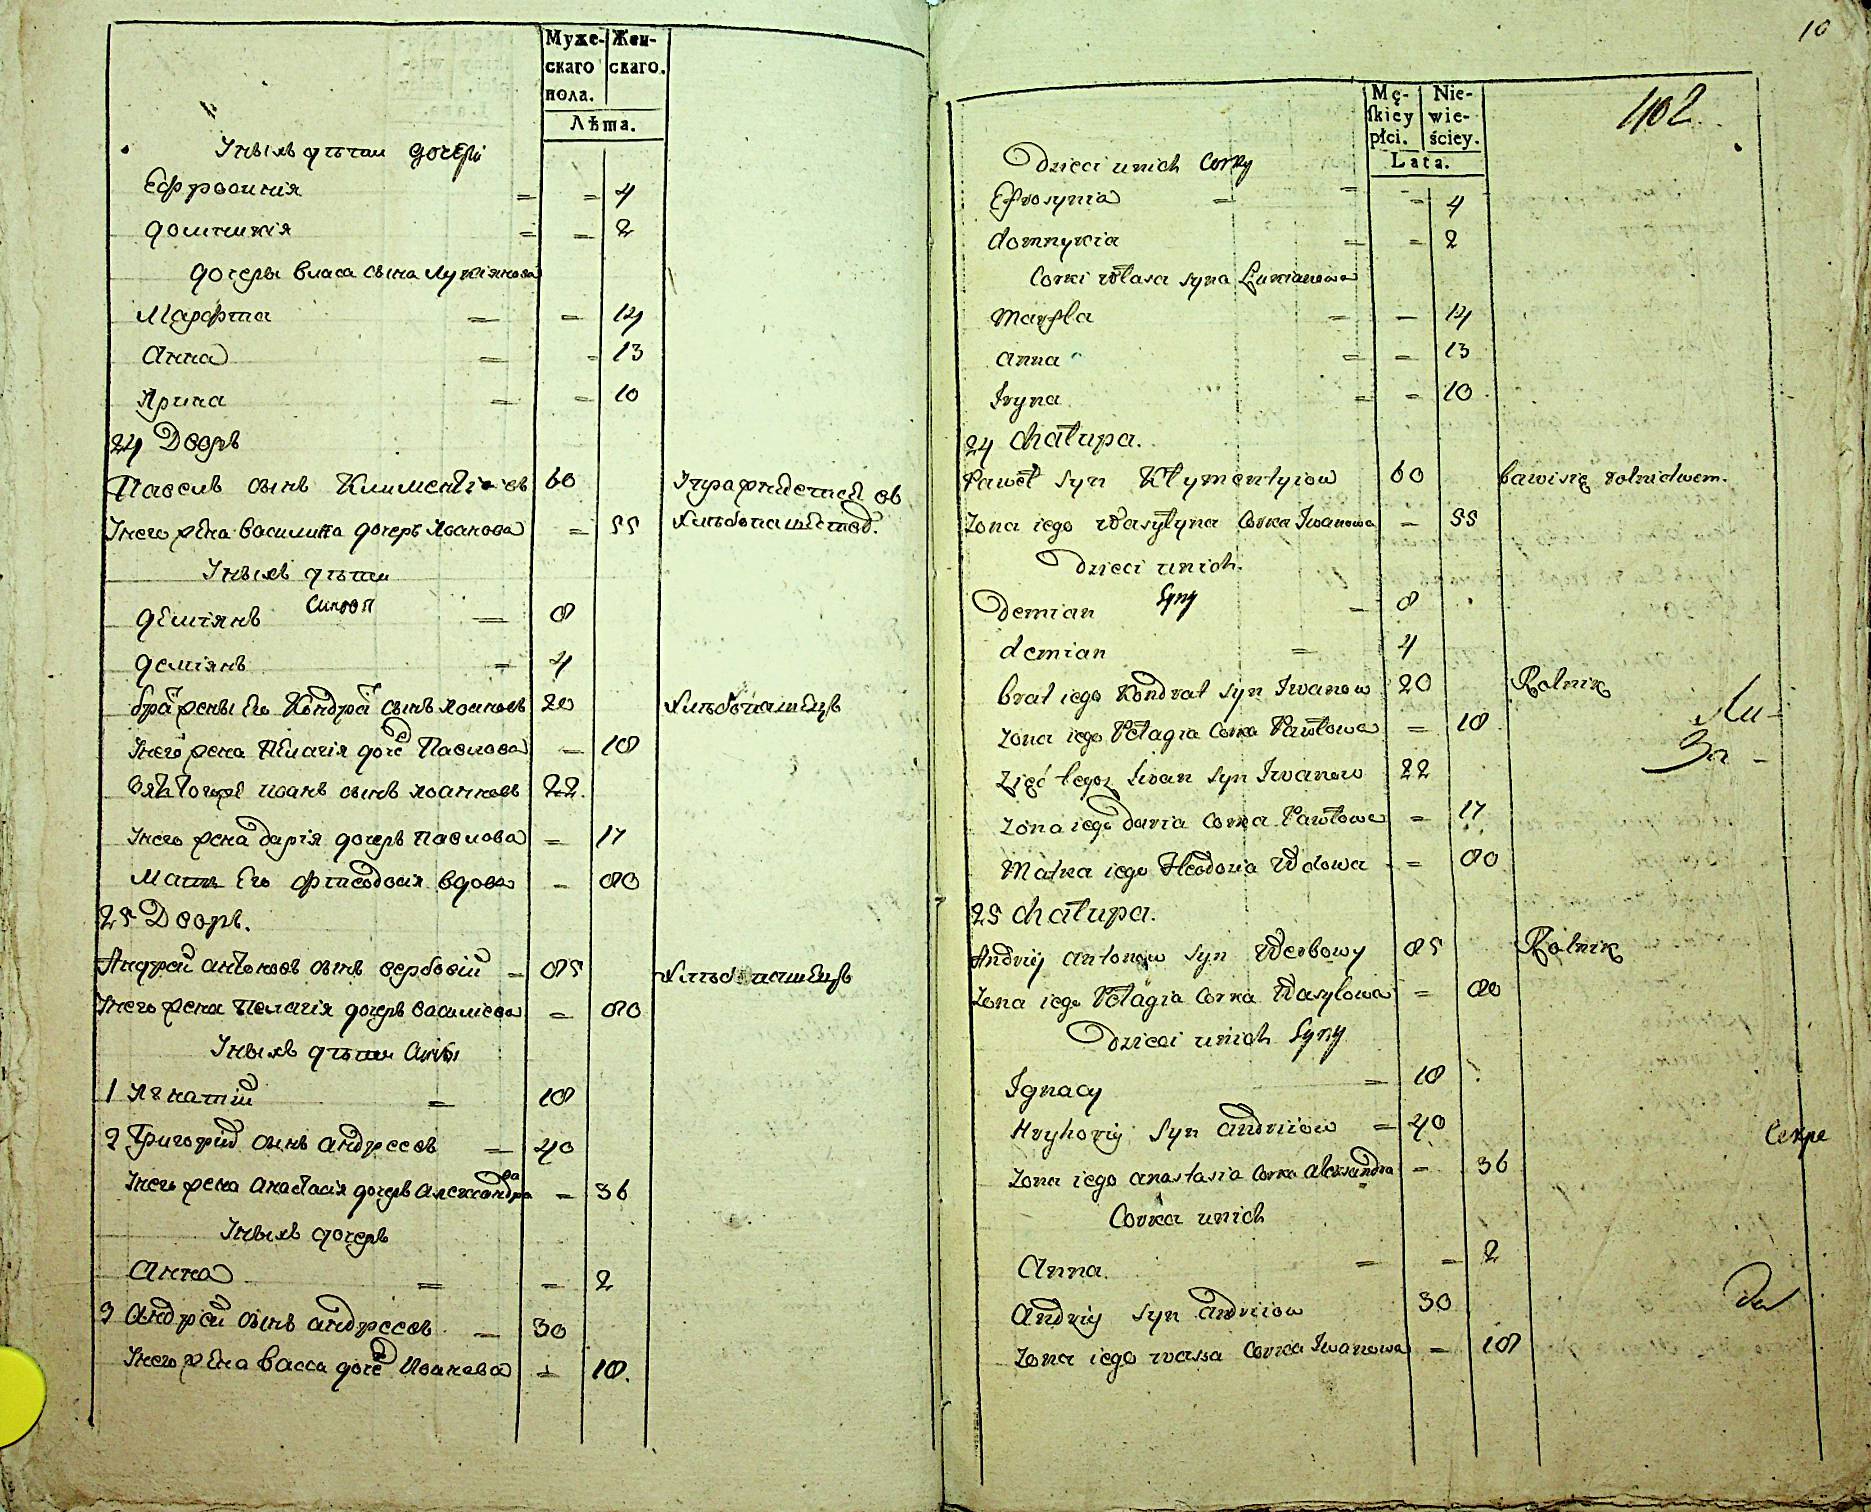 Муже-
скаго
пола.
Жен-
скаго.
Лѣта.
У нихъ дѣти дочери
Ефросинія = = 4
Домникія = = 2
Дочеры Власа сына Лукіянова
Марфта = = 14
Анна = = 13
Ярина = = 10
24 Дворъ
Павелъ сынъ Климентіевъ 60
У него жена Василина дочерь Иванова = 55
хлебопашество.
У нихъ дѣти
Деміянъ = 8
Деміянъ = 4
Кондрат сынъ Иоановъ 20 хлѣбопашецъ
У него жена Пелагія доче Павлова = 18
Зять Иоанъ сынъ Иоанновъ 22.
У него жена Дарія дочерь Павлова = 17
Мать Его Фтеодосія вдова = 80
25 Дворъ.
Андрей Антоновъ сынъ Вербовій = 85 хлѣбопашецъ
У него жена Пелагія дочерь Василіева = 80
У нихъ дѣти Сины
1 Игнатій = 18
2 Григорій сынъ Андреевъ = 40
У него жена Анастасія дочерь Александрова = 36
У нихъ дочерь
Анна = = 2
3 Андрей сынъ Андреевъ = 30
У него жена Васса доче Иванова = 18.
10
402
Mę-
skiey
płci.
Nie-
wie-
ściey.
Lata.
Dzieci u nich Corky
Efrosynia = = 4
Domnykia = = 2
Corki Własa syna Łukianowa
Marfta = = 14
Anna = = 13
Iryna = = 10
24 Chałupa.
Paweł syn Kłymentyiow 60 bawi się rolnictwem.
Zona iego Wasyłyna Corka Iwanowa = 55
Dzieci u nich
Syny
Demian = 8
demian = 4
brat iego Kondrat syn Iwanow 20 Rolnik
Zona iego Pełagia Corka Pawłowa = 18
Zięć tegoz Iwan syn Iwanow 22
Zona iego daria Corka Pawłowa = 17
Matka iego Fteodosia Wdowa = 80
25 Chałupa.
Andriy Antonow syn Werbowy 85 Rolnik
Zona iego Pełagia Corka Wasylowa = 80
Dzieci u nich Syny
Ignacy = 18
Hryhoriy syn Andriiow = 40
Zona iego Anastasia Corka Alexandra = 36
Corka u nich
Anna = = 2
Andriy syn Andriiow 30
Zona iego Wassa Corka Iwanowa = 18